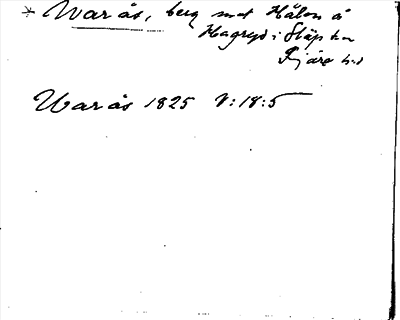 * Warås, berg mot Hålen å
Hagryd i Släp sn
Fjäre hd
Warås 1825 V:18:5